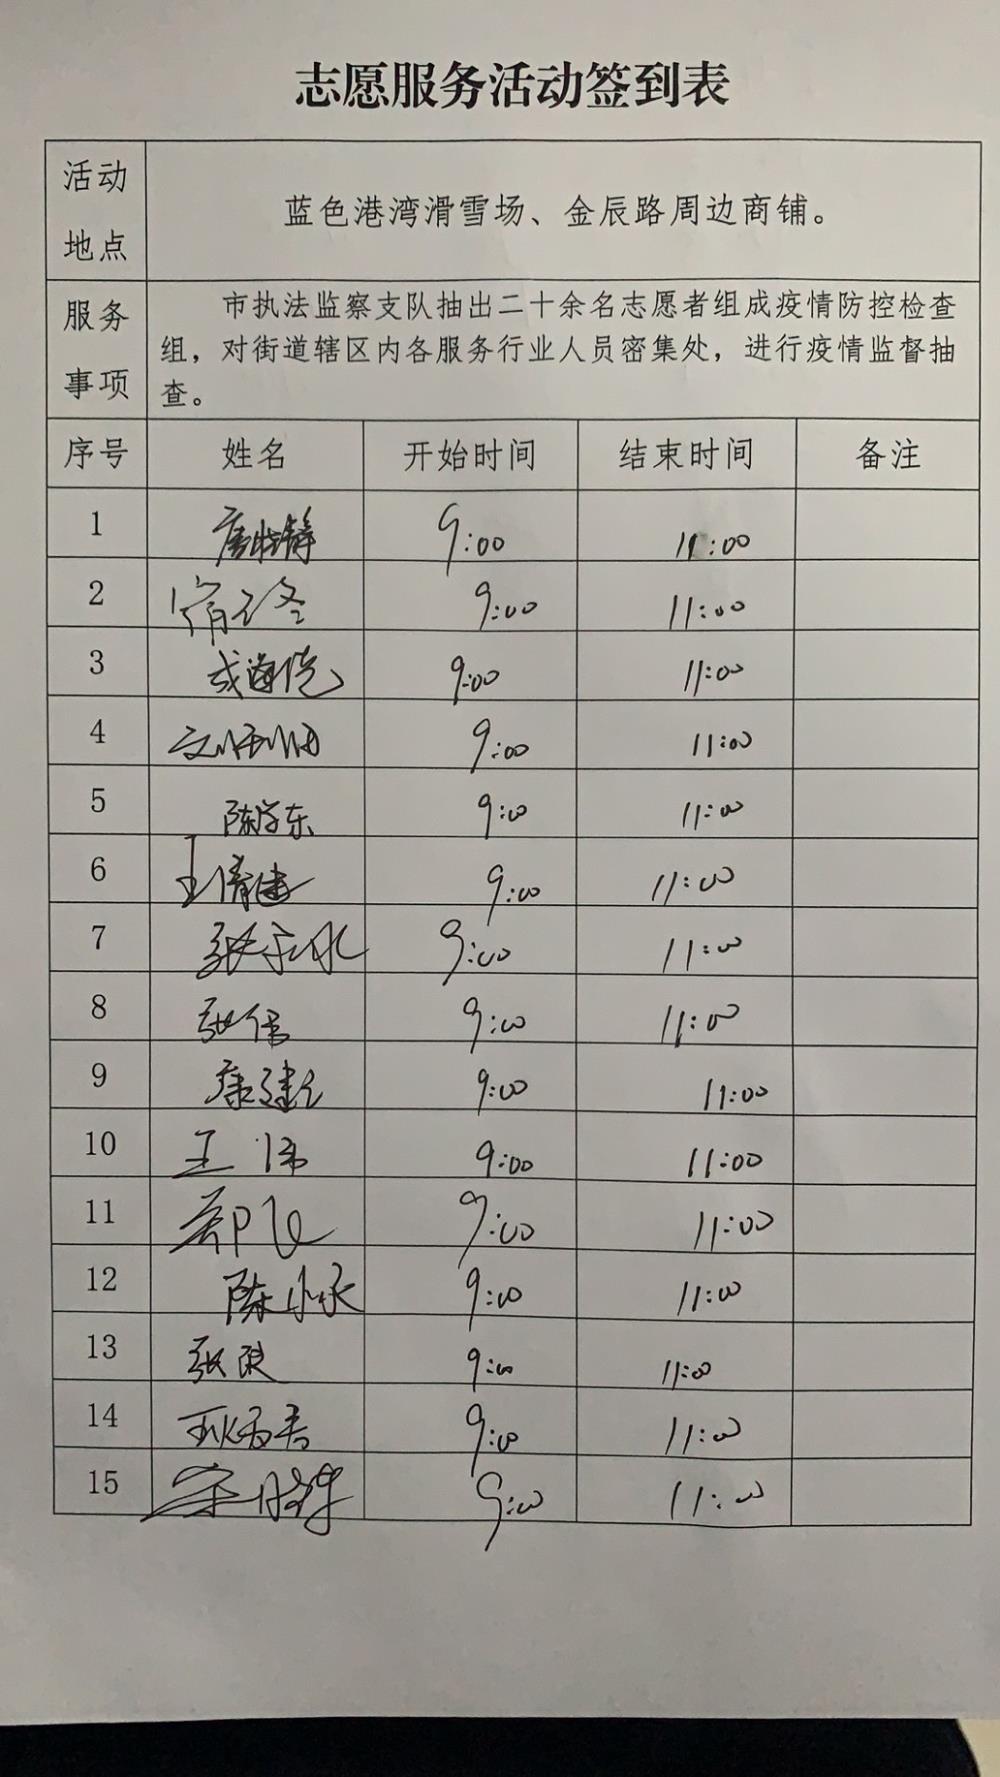 志愿服务活动签到表
活动地点 蓝色港湾滑雪场、金辰路周边商铺。
服务事项 市执法监察支队抽出二十余名志愿者组成疫情防控检查
组，对街道辖区内各服务行业人员密集处，进行疫情监督抽
查。
序号 姓名 开始时间 结束时间 备注
1 9:00 11:00
2 9:00 11:00
3 9:00 11:00
4 9:00 11:00
5 陈学东 9:00 11:00
6 王倩建 9:00 11:00
7 9:00 11:00
8 张伟 9:00 11:00
9 9:00 11:00
10 王伟 9:00 11:00
11 郑飞 9:00 11:00
12 陈小永 9:00 11:00
13 9:00 11:00
14 9:00 11:00
15 9:00 11:00